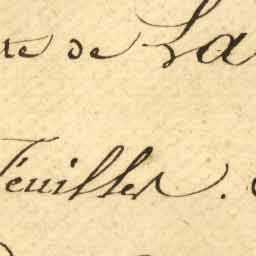 te de La
feuilles.